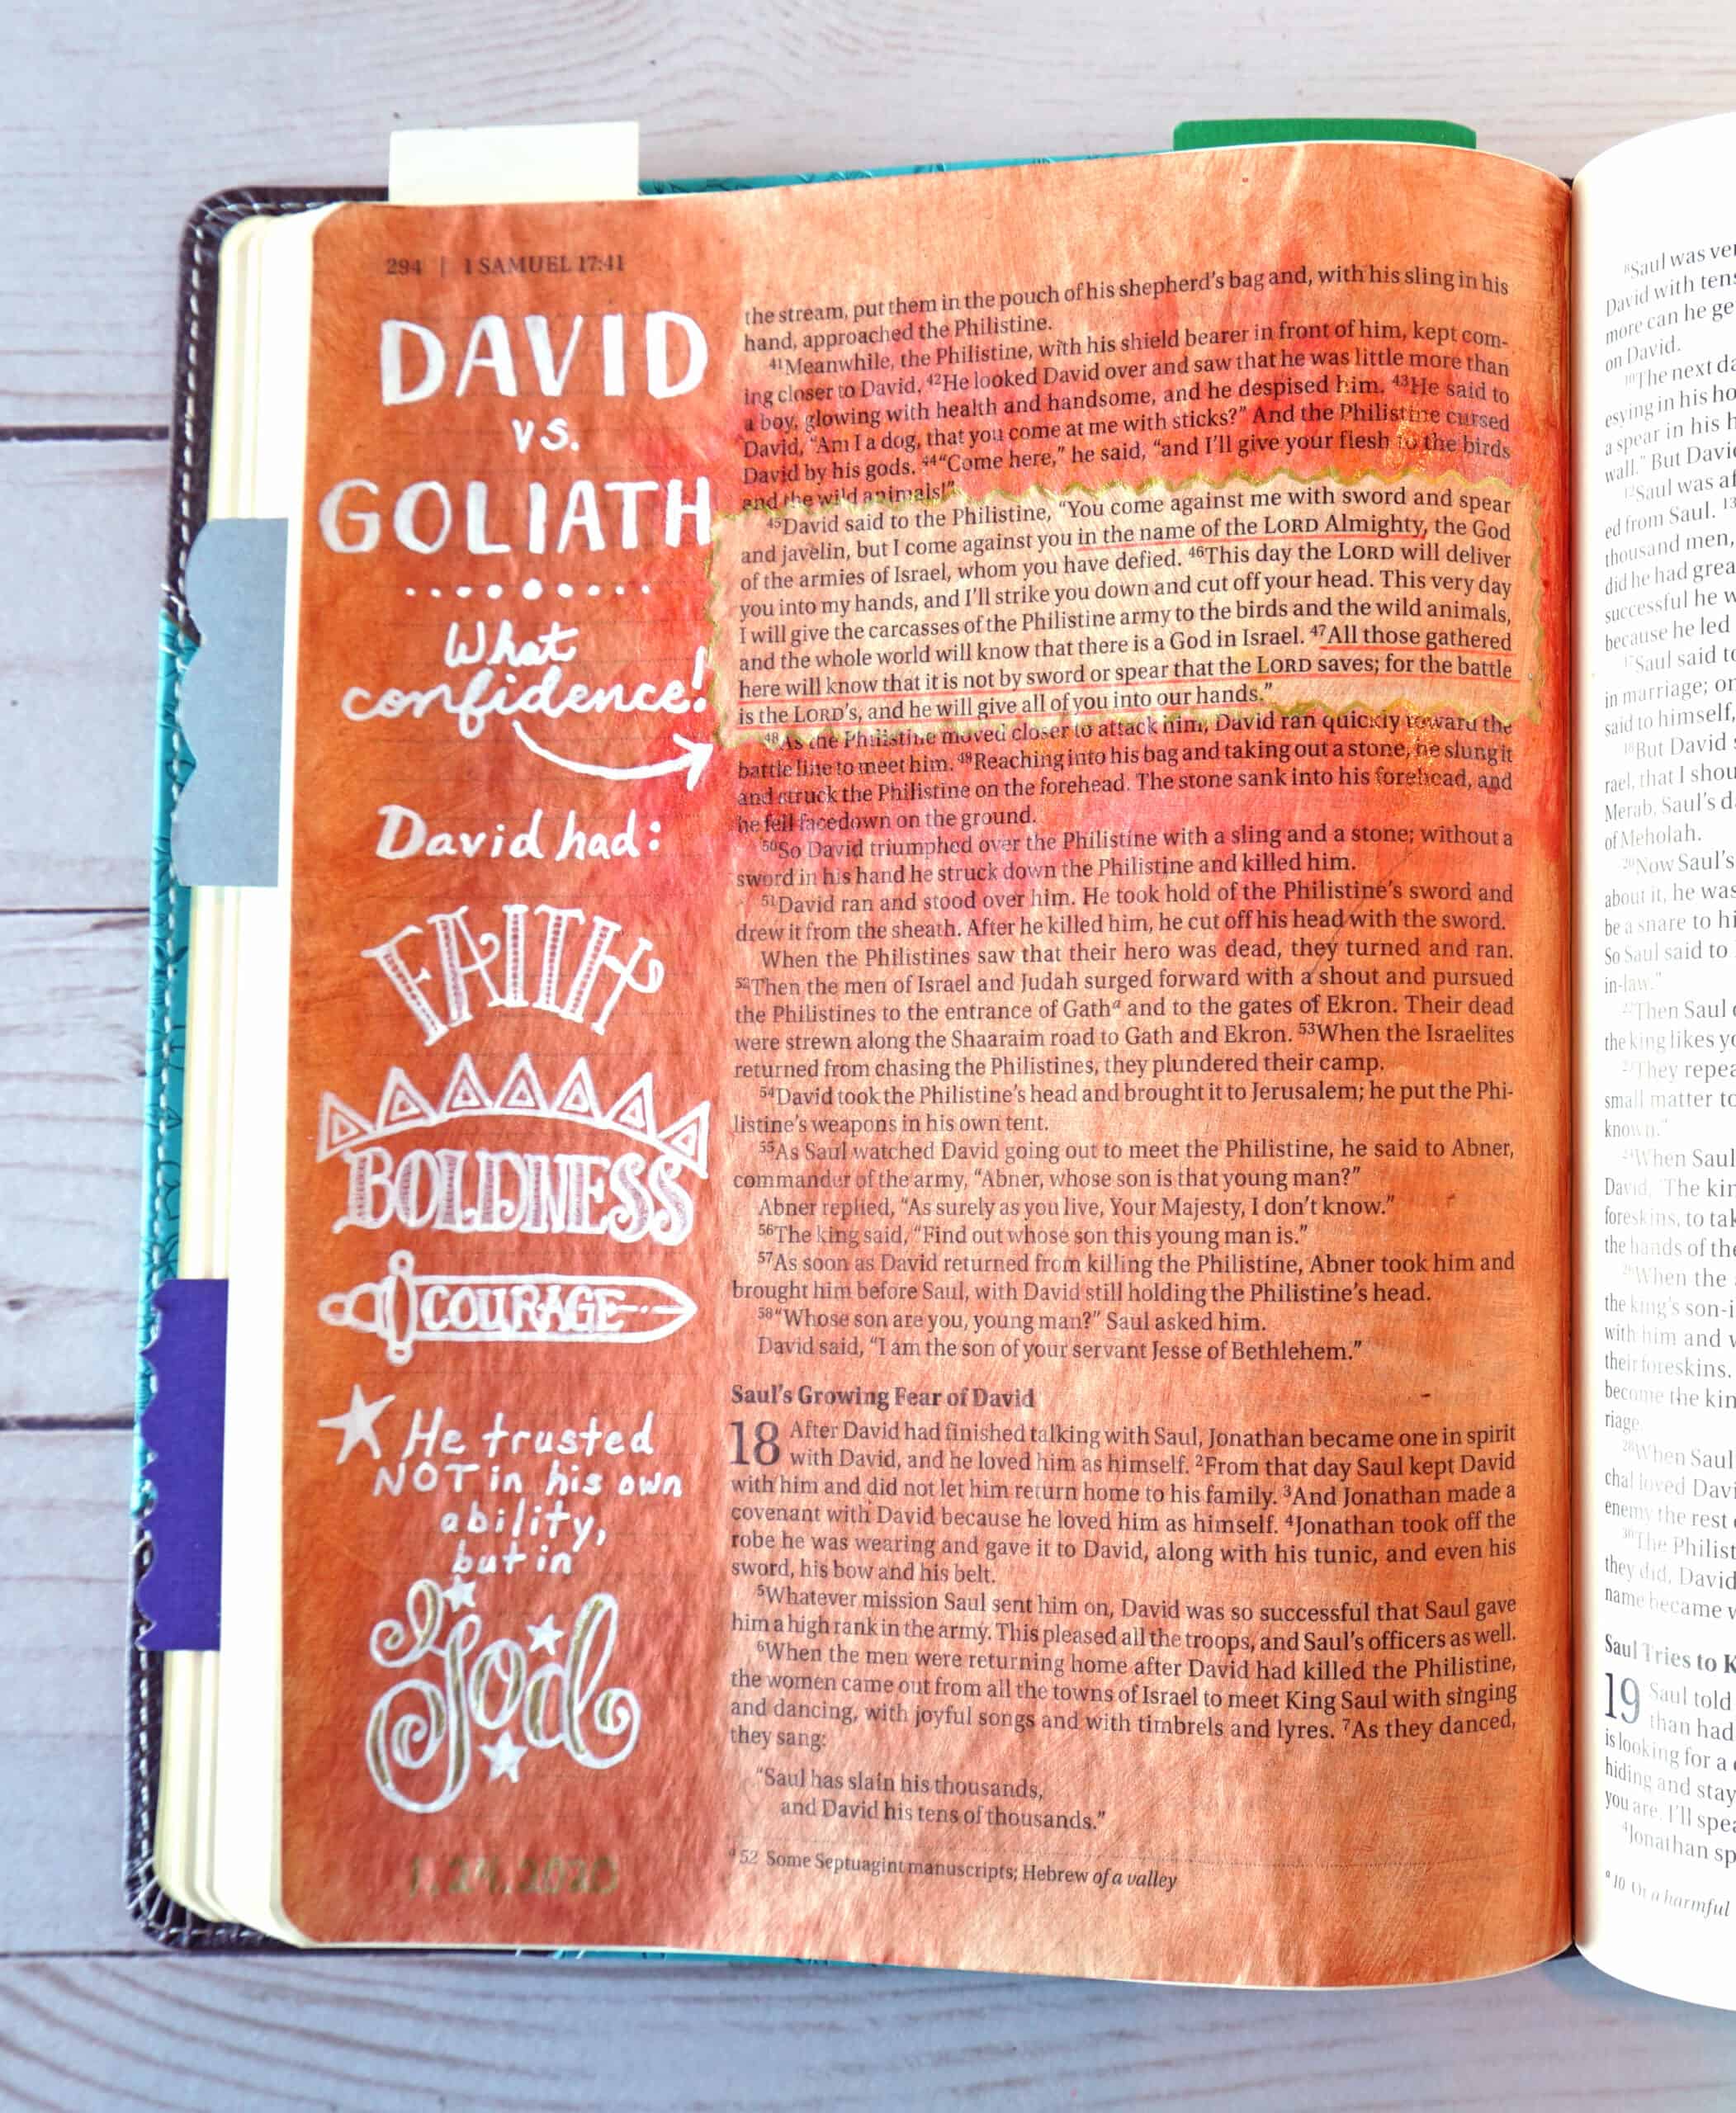 294 | 1 SAMUEL 17:41
DAVID
vs.
GOLIATH
What
confidence!
David had:
FAITH
BOLDNESS
COURAGE
He trusted
NOT in his own
ability,
but in
God
1.24.2020
the stream, put them in the pouch of his shepherd's bag and, with his sling in his
hand, approached the Philistine.
41Meanwhile, the Philistine, with his shield bearer in front of him, kept com-
ing closer to David. 42He looked David over and saw that he was little more than
a boy, glowing with health and handsome, and he despised him. 43He said to
David, “Am I a dog, that you come at me with sticks?” And the Philistine cursed
David by his gods. 44“Come here,” he said, “and I'll give your flesh to the birds
and the wild animals!”
45David said to the Philistine, “You come against me with sword and spear
and javelin, but I come against you in the name of the LORD Almighty, the God
of the armies of Israel, whom you have defied. 46This day the LORD will deliver
you into my hands, and I'll strike you down and cut off your head. This very day
I will give the carcasses of the Philistine army to the birds and the wild animals,
and the whole world will know that there is a God in Israel. 47All those gathered
here will know that it is not by sword or spear that the LORD saves; for the battle
is the LORD's, and he will give all of you into our hands.”
48As the Philistine moved closer to attack him, David ran quickly toward the
battle line to meet him. 49Reaching into his bag and taking out a stone, he slung it
and struck the Philistine on the forehead. The stone sank into his forehead, and
he fell facedown on the ground.
50So David triumphed over the Philistine with a sling and a stone; without a
sword in his hand he struck down the Philistine and killed him.
51David ran and stood over him. He took hold of the Philistine's sword and
drew it from the sheath. After he killed him, he cut off his head with the sword.
When the Philistines saw that their hero was dead, they turned and ran.
52Then the men of Israel and Judah surged forward with a shout and pursued
the Philistines to the entrance of Gatha and to the gates of Ekron. Their dead
were strewn along the Shaaraim road to Gath and Ekron. 53When the Israelites
returned from chasing the Philistines, they plundered their camp.
54David took the Philistine's head and brought it to Jerusalem; he put the Phi-
listine's weapons in his own tent.
55As Saul watched David going out to meet the Philistine, he said to Abner,
commander of the army, “Abner, whose son is that young man?”
Abner replied, “As surely as you live, Your Majesty, I don't know.”
56The king said, “Find out whose son this young man is.”
57As soon as David returned from killing the Philistine, Abner took him and
brought him before Saul, with David still holding the Philistine's head.
58“Whose son are you, young man?” Saul asked him.
David said, “I am the son of your servant Jesse of Bethlehem.”
Saul's Growing Fear of David
18 After David had finished talking with Saul, Jonathan became one in spirit
with David, and he loved him as himself. 2From that day Saul kept David
with him and did not let him return home to his family. 3And Jonathan made a
covenant with David because he loved him as himself. 4Jonathan took off the
robe he was wearing and gave it to David, along with his tunic, and even his
sword, his bow and his belt.
5Whatever mission Saul sent him on, David was so successful that Saul gave
him a high rank in the army. This pleased all the troops, and Saul's officers as well.
6When the men were returning home after David had killed the Philistine,
the women came out from all the towns of Israel to meet King Saul with singing
and dancing, with joyful songs and with timbrels and lyres. 7As they danced,
they sang:
“Saul has slain his thousands,
and David his tens of thousands.”
a 52 Some Septuagint manuscripts; Hebrew of a valley
8Saul was
David with
more can he
on David.
10The next
esying in his
a spear in his
wall.” But
12Saul was
ed from Saul. 13
thousand men,
did he had
successful he
because he led
17Saul said
in marriage;
said to himself,
18But David
rael, that I
Merab, Saul's
of Meholah.
20Now Saul's
about it, he was
be a snare to
So Saul said to
in-law.”
22Then Saul
the king likes
23They
small matter
known.”
24When Saul
David. The
foreskins, to
the hands of the
26When the
the king's
with him and
their foreskins.
become the
riage.
28When Saul
chal loved
enemy the rest
30The
they did, David
name became
Saul Tries to
19 Saul told
than had
is looking for a
hiding and
you are. I'll
4Jonathan
a 10 Or a harmful